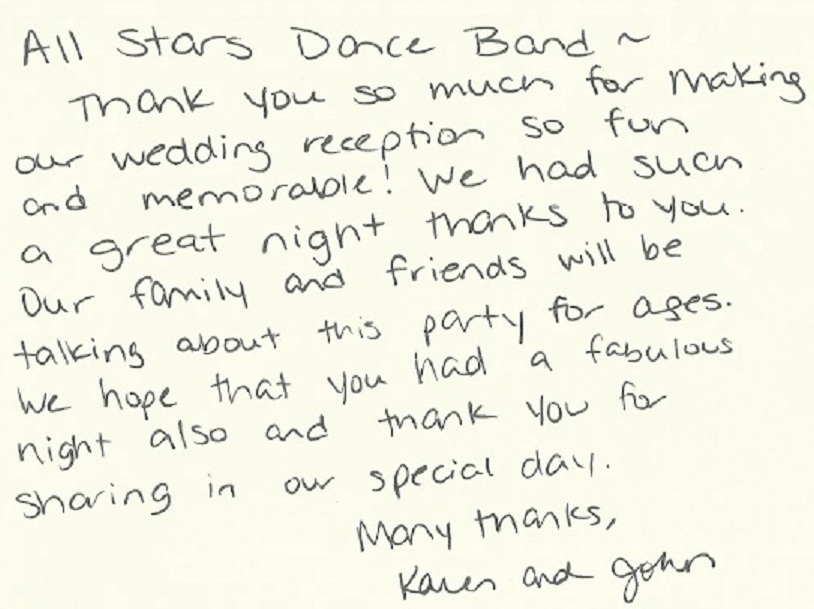 All Stars Dance Band ~
Thank you so much for making
our wedding reception so fun
and memorable! We had such
a great night thanks to you.
Our family and friends will be
talking about this party for ages.
We hope that you had a fabulous
night also and thank you for
sharing in our special day.
Many thanks,
Karen and John